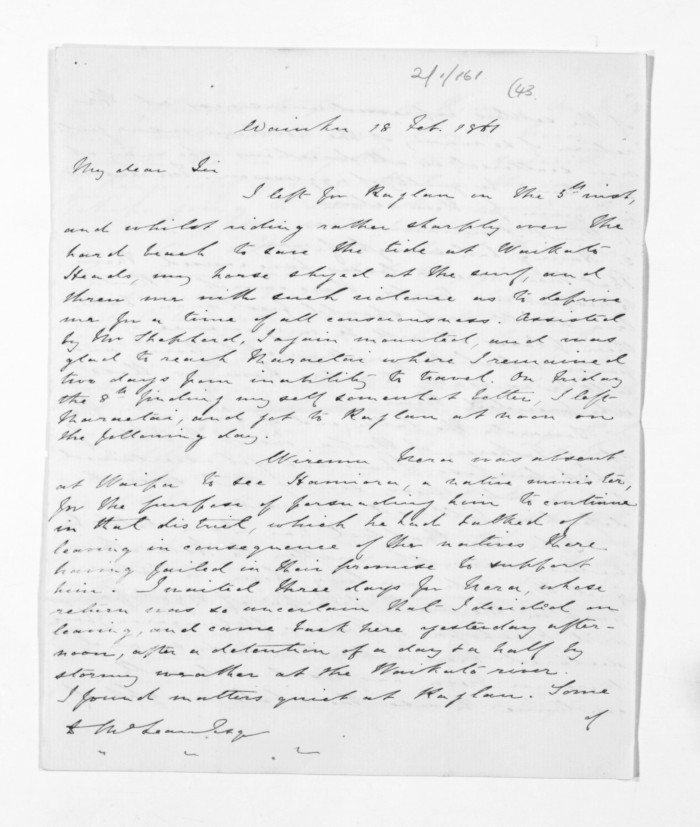 2/1/161
(43
Waiuku 18 Feb. 1861
My dear Sir
I left for Raglan on the 5th inst,
and whilst riding rather sharply over the
hard beach to save the tide at Waikato
Heads, my horse shyed at the surf, and
threw me with such violence as to deprive
me for a time of all consciousness. Assisted
by Mr Shepherd, I again mounted, and was
glad to reach Maraetai where I remained
two days from inability to travel. On Friday
the 8th finding myself somewhat better, I left
Maraetai, and got to Raglan at noon on
the following day.
Wiremu Nera was absent
at Waipa to see Hamiora, a native minister,
for the purpose of persuading him to continue
in that district, which he had talked of
leaving in consequence of the natives there
having failed in their promise to support
him. I waited three days for Nera, whose
return was so uncertain that I decided on
leaving, and came back here yesterday after-
noon, after a detention of a day & a half by
stormy weather at the Waikato river.
I found matters quiet at Raglan. Some
of
D McLean Esq